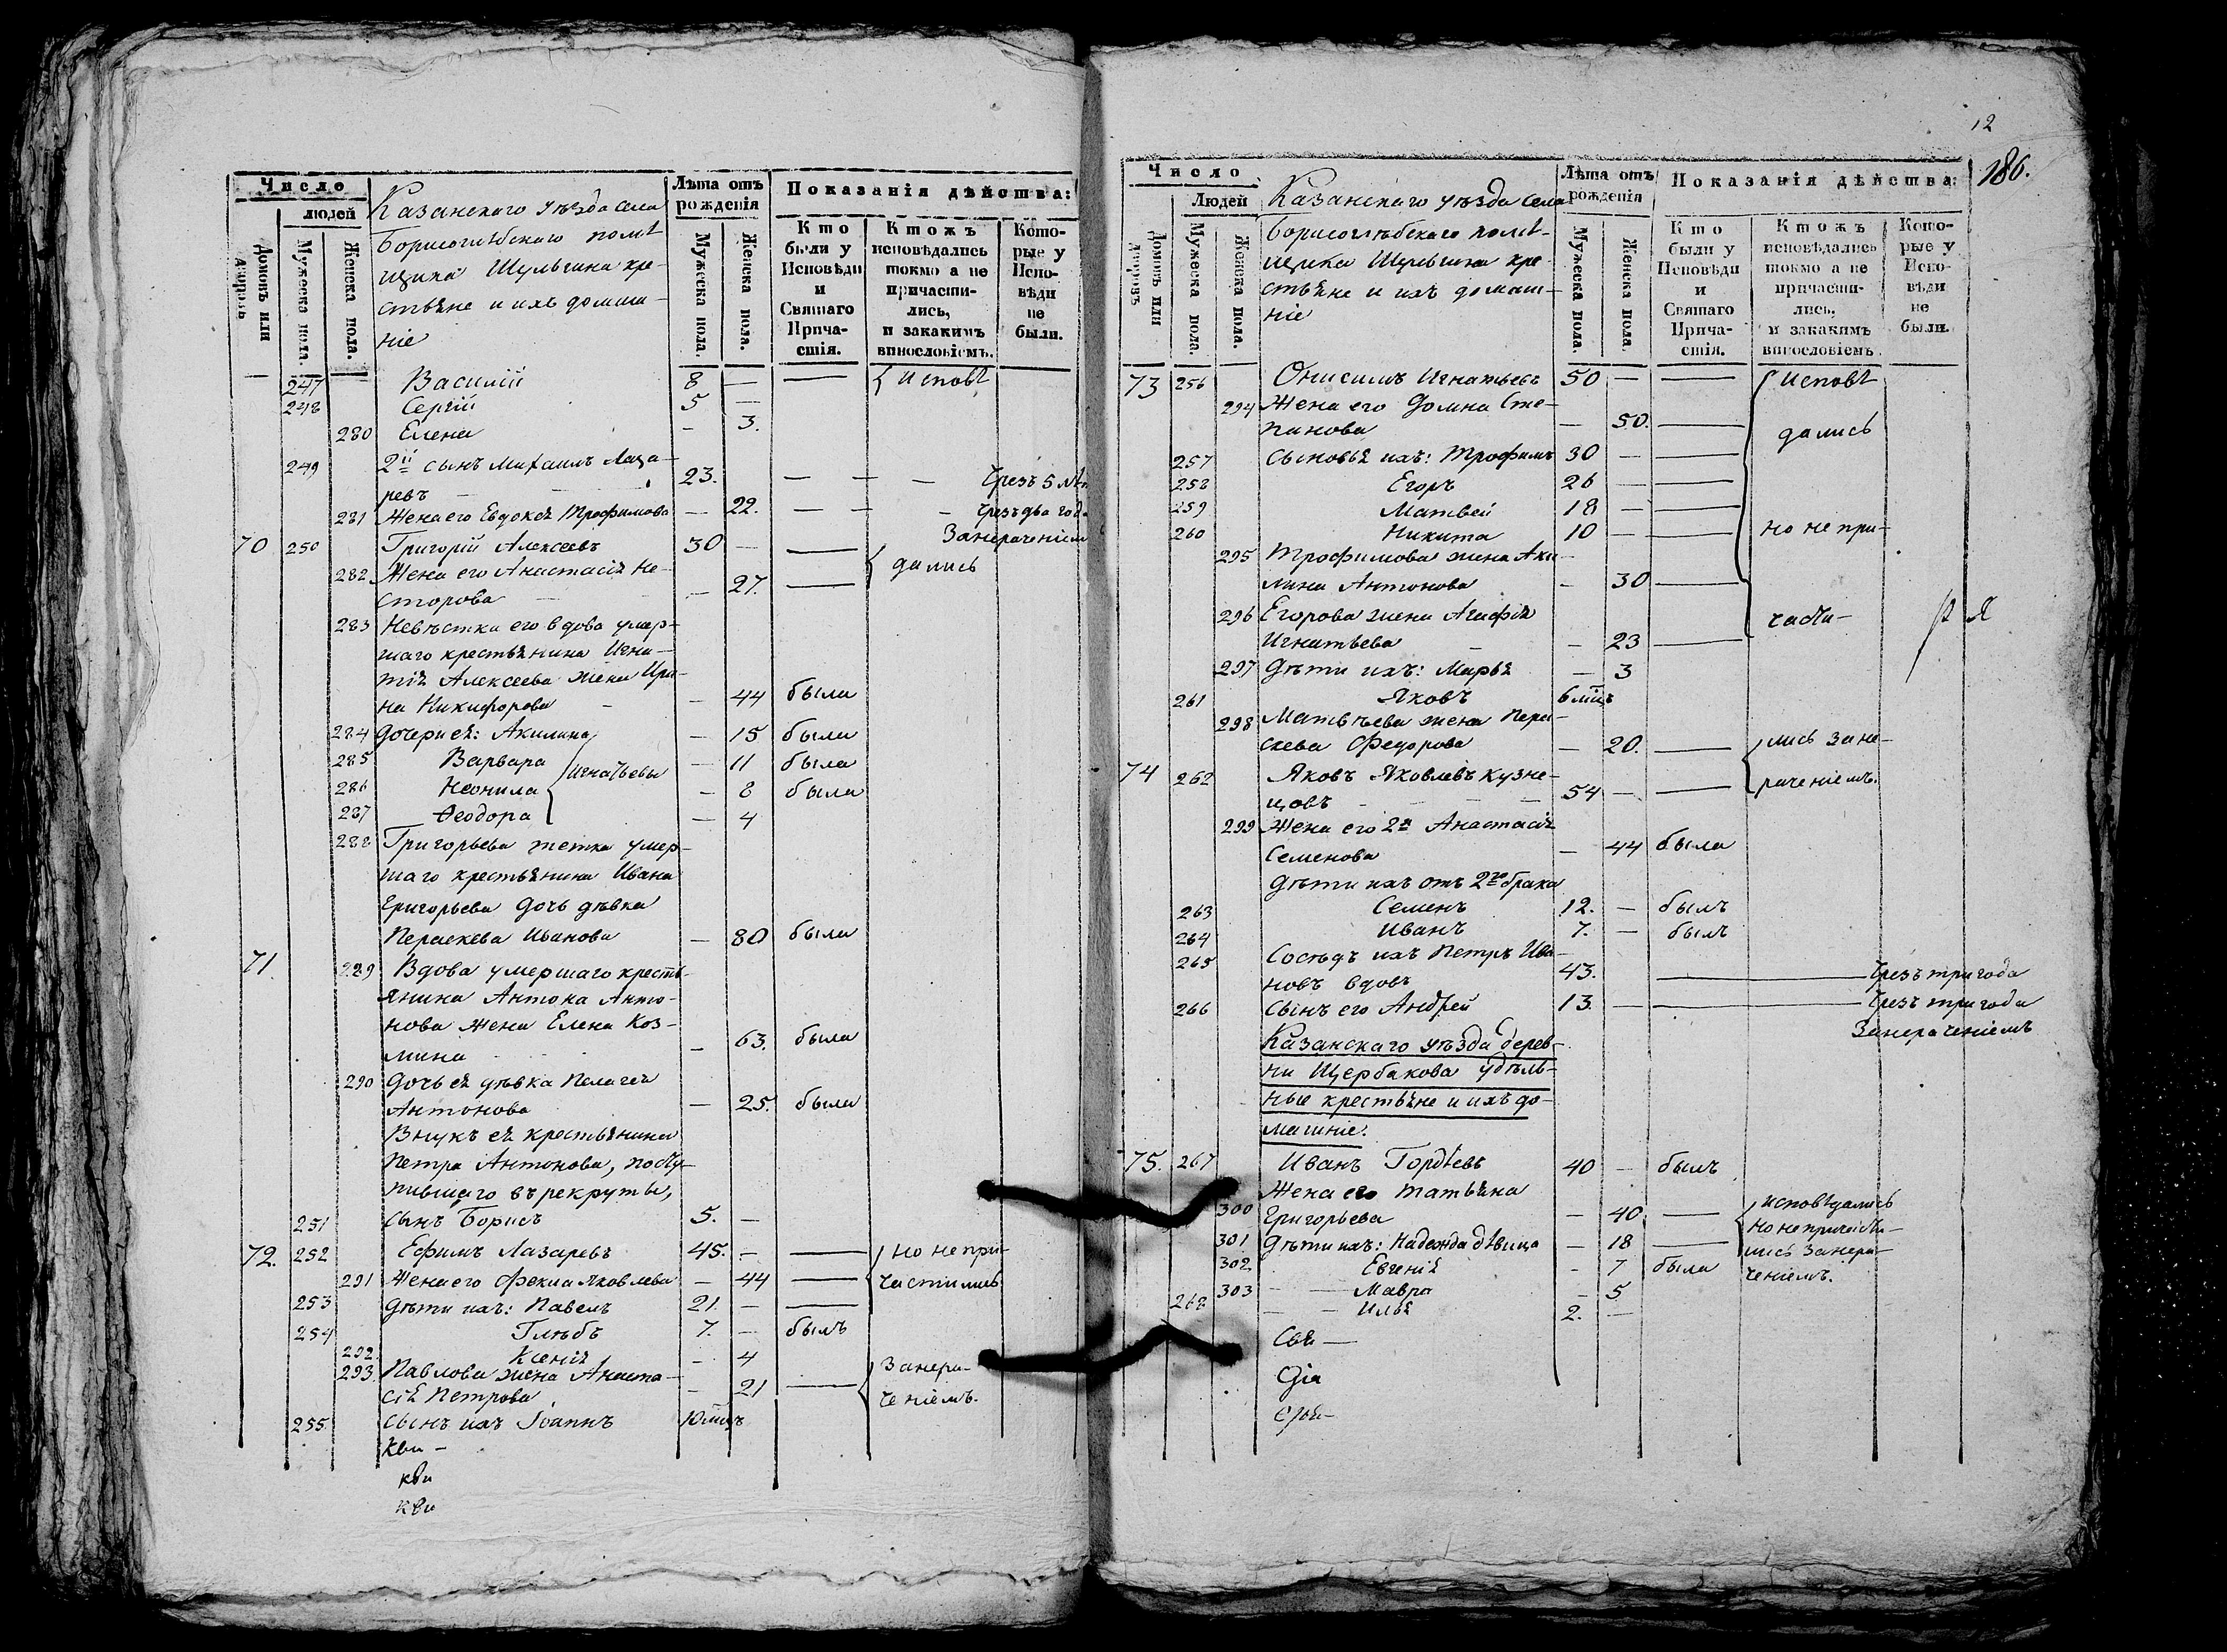 Число
людей
Домовъ или дворовъ
Мужеска пола.
Женска пола.
Казанскаго уѣзда села
Борисоглѣбскаго помѣ-
щика Шульгина кре-
стьяне и ихъ домаш-
ніе
Лѣта отъ
рожденія
Мужеска пола.
Женска пола.
Показанія дѣйства:
Кто
были у
Исповѣди
и
Святаго
Прича-
стія.
Ктожъ
исповѣдались
токмо а не
причасти-
лись,
и закакимъ
винословіемъ.
Кото-
рые у
Испо-
вѣди
не
были.
247 Василій 8 — — исповѣ
248 Сергій 5 —
280 Елена — 3.
249 2й сынъ Михаилъ Лаза-
ревъ 23. — — — Чрезъ 5 лѣт
281 Жена его Евдокія Трофимова — 22. — — — чрезъ два год
Занераченіем
70 250 Григорій Алексеевъ 30 — —
дались
282 Жена его Анастасія Не-
сторова — 27. —
283 Невѣстка его вдова умер-
шаго крестьянина Игна-
тія Алексеева жена Ири-
на Никифорова — 44 была
284 Дочери ея: Акилина — 15 была
285 Варвара Игнатьевы — 11 была
286 Неонила — 8 была
287 Ѳеодора — 4
288 Григорьева тетка умер-
шаго крестьянина Ивана
Григорьева дочь дѣвка
Параскева Иванова — 80 была
71. 289 Вдова умершаго кресть-
янина Антона Анто-
нова жена Елена Коз-
мина — 63. была
290 Дочь ея дѣвка Пелагея
Антонова — 25. была
Внукъ ея крестьянина
Петра Антонова, посту-
пившаго въ рекруты,
251 сынъ Борисъ 5. —
72. 252 Ефимъ Лазаревъ 45. — — но не при-
291 Жена его Фекла Яковлева — 44 — частились
253 Дѣти ихъ: Павелъ 21. — —
254 Глѣбъ 7. — былъ
292. Ксенія — 4
293. Павлова жена Анаста-
сія Петрова — 21 — Занера-
ченіемъ.
255. Сынъ ихъ Іоаннъ 10 мцъ
12
186.
Число
Людей
Домовъ или дворовъ
Мужеска пола.
Женска пола.
Казанскаго уѣзда села
Борисоглѣбскаго помѣ-
щика Шульгина кре-
стьяне и ихъ домаш-
ніе
Лѣта отъ
рожденія
Мужеска пола.
Женска пола.
Показанія дѣйства:
Кто
были у
Исповѣди
и
Святаго
Прича-
стія.
Ктожъ
исповѣдались
токмо а не
причасти-
лись,
и закакимъ
винословіемъ.
Кото-
рые у
Испо-
вѣди
не
были.
73 256 Онисимъ Игнатьевъ 50 — — исповѣ
294 Жена его Домна Сте-
панова — 50. — дались
257 Сыновья ихъ: Трофимъ 30 — —
258 Егоръ 26 — —
259 Матвей 18 — —
260 Никита 10 — — но не при-
295 Трофимова жена Аки-
лина Антонова — 30 —
296 Егорова жена Агафія
Игнатьева — 23 — части-
297 Дѣти ихъ: Марья — 3
261 Яковъ 6 мцъ
298 Матвѣева жена Пара-
скева Федорова — 20. — лись Зане-
74 262 Яковъ Яковлевъ Кузне-
цовъ 54 — — раченіемъ.
299 Жена его 2я Анастасія
Семенова — 44 была
Дѣти ихъ отъ 2го брака
263 Семенъ 12. — былъ
264 Иванъ 7. — былъ
265 Сосѣдъ ихъ Петръ Ива-
новъ вдовъ 43. — Чрезъ три года
266 Сынъ его Андрей 13. — — Чрезъ три года
Занераченіемъ
Казанскаго уѣзда дерев-
ни Щербакова удѣль-
ные крестьяне и ихъ до-
машніе.
75. 267 Иванъ Гордѣевъ 40 — былъ
Жена его Татьяна
300 Григорьева — 40. — исповѣдались
но не причасти-
301 Дѣти ихъ: Надежда дѣвица — 18 — лись Занера-
302 Евгенія — 7 была ченіемъ.
303 — — Мавра — 5
268 — — Илья 2. —